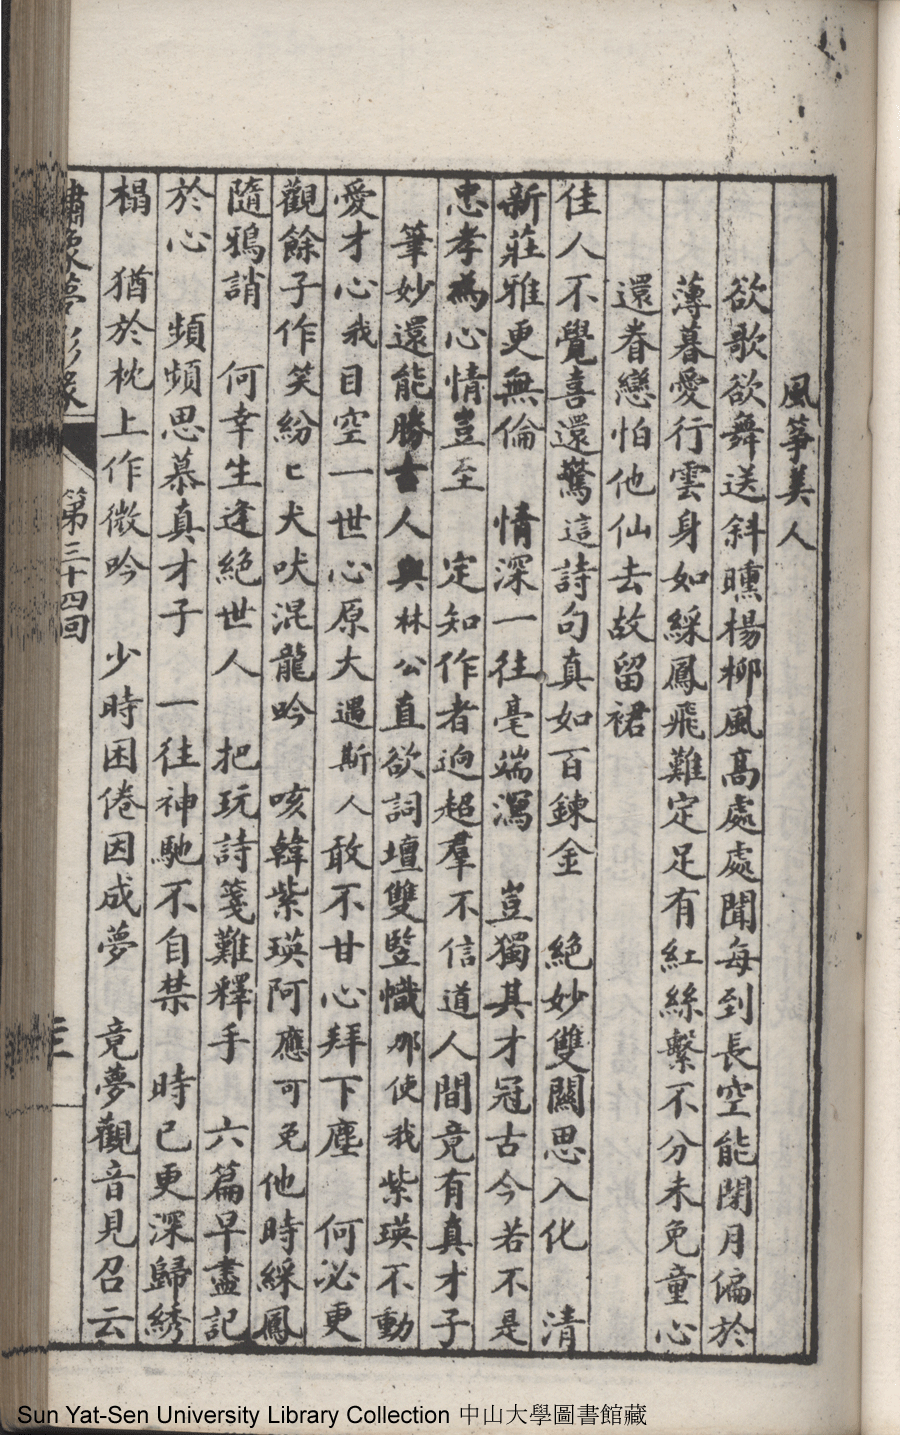 風箏美人
欲歌欲舞送斜曛楊柳風高處處聞每到長空能閉月偏於
薄暮愛行雲身如綵鳳飛難定足有紅絲繫不分未免童心
還眷戀怕他仙去故留裙
佳人不覺喜還驚這詩句真如百鍊金 絕妙雙關思入化 清
新莊雅更無倫 情深一往毫端瀉 豈獨其才冠古今若不是
忠孝為心情豈至 定知作者逈超羣不信道人間竟有真才子
筆妙還能勝古人與林公直欲詞壇雙豎幟那使我紫瑛不動
愛才心我目空一世心原大遇斯人敢不甘心拜下塵 何必更
觀餘子作笑紛匕犬吠混龍吟 咳韓紫瑛阿應可免他時綵鳳
隨鴉誚 何幸生逢絕世人 把玩詩箋難釋手 六篇早盡記
於心 頻頻思慕真才子 一往神馳不自禁 時已更深歸綉
榻 猶於枕上作微吟 少時困倦因成夢 竟夢觀音見召云
夢影 第三十四回